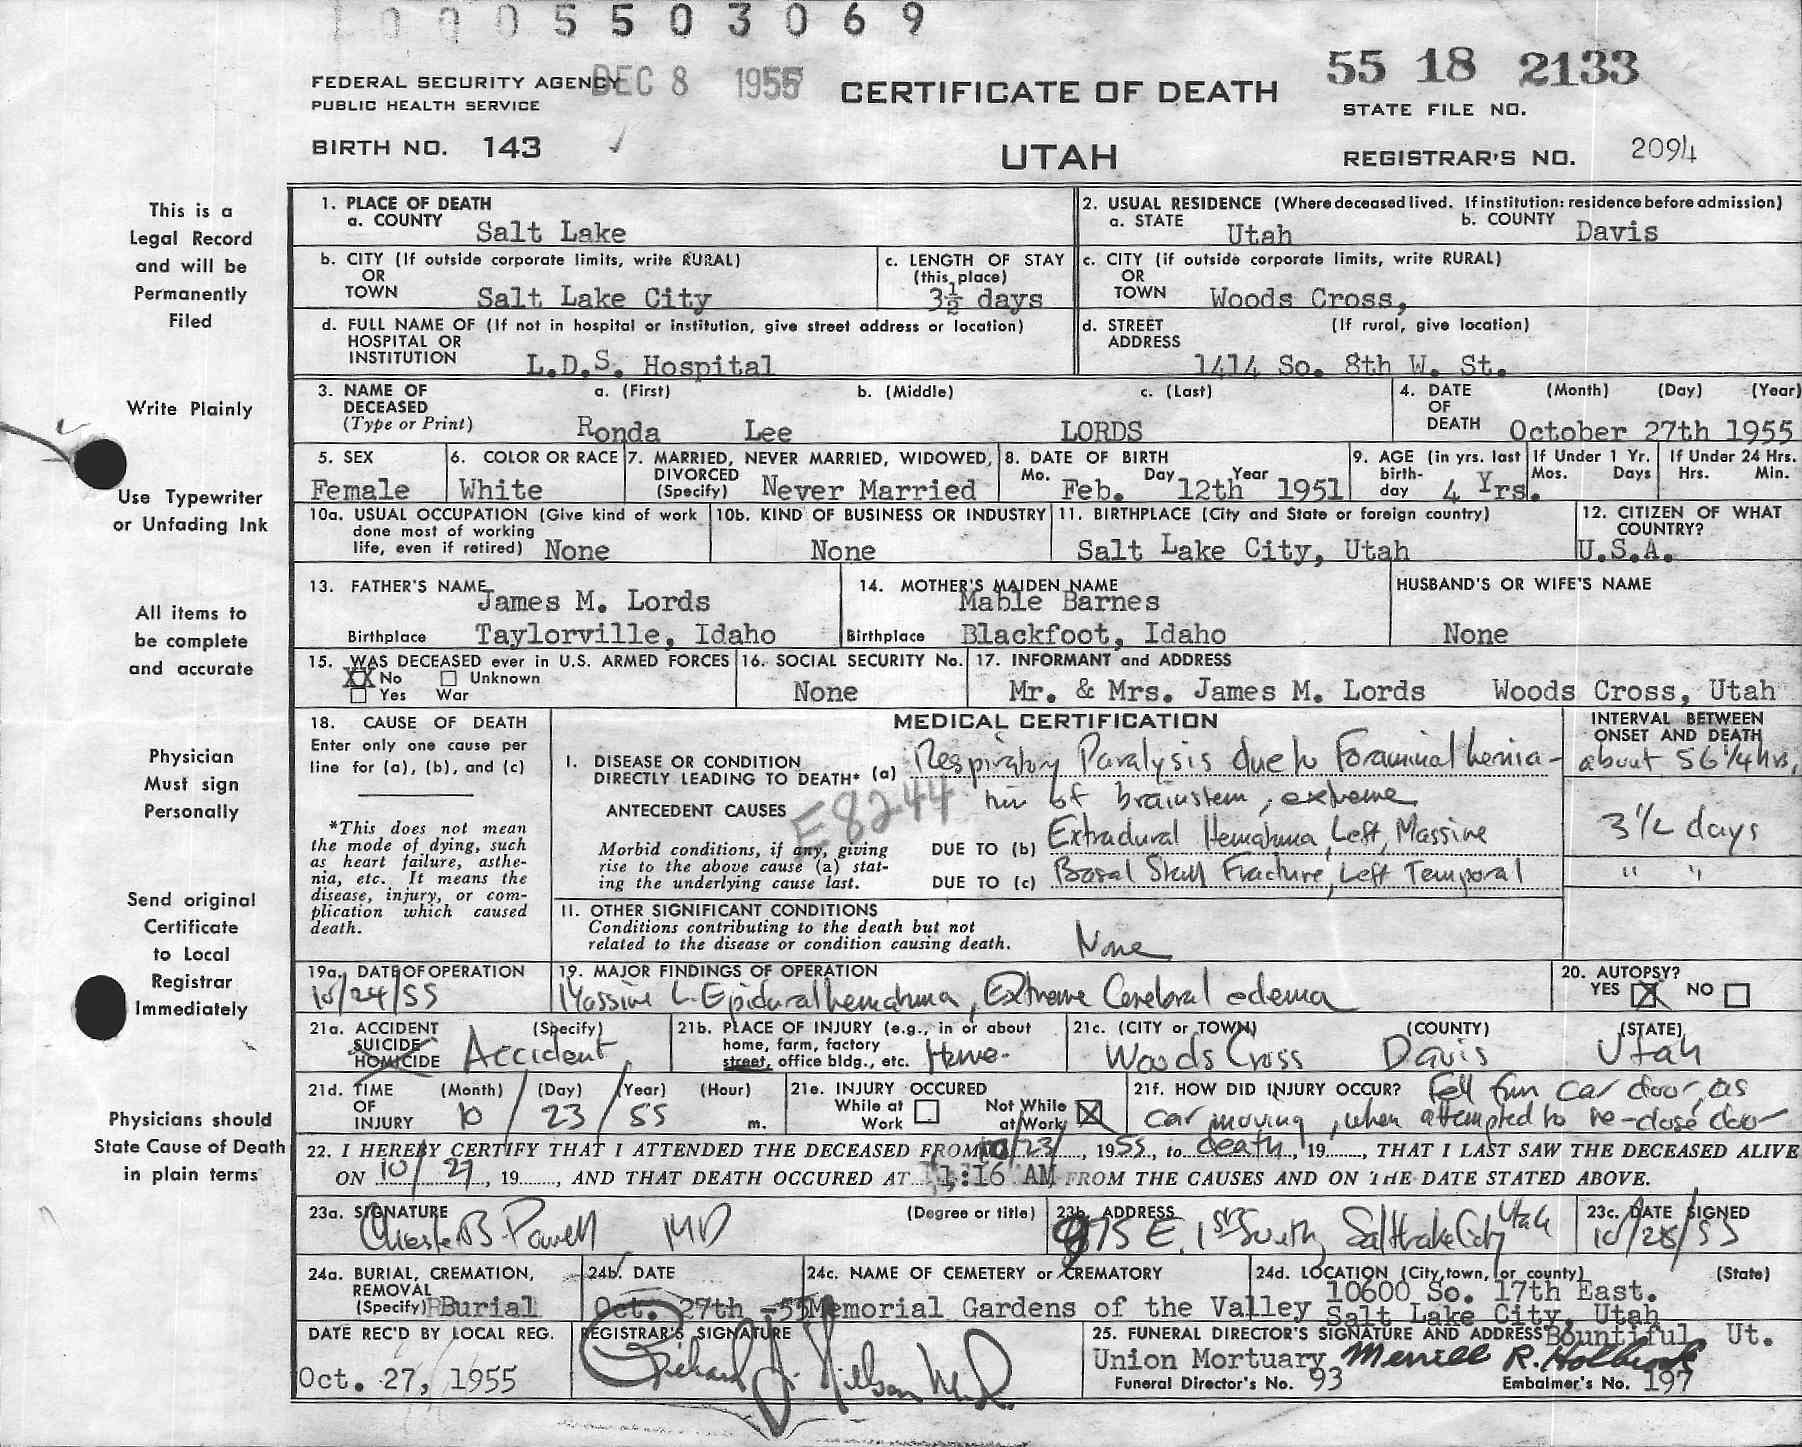 10005503069
FEDERAL SECURITY AGENCY DEC 8 1955 CERTIFICATE OF DEATH 55 18 2133
PUBLIC HEALTH SERVICE STATE FILE NO.
BIRTH NO. 143 UTAH REGISTRAR'S NO. 2094
This is a
Legal Record
and will be
Permanently
Filed
Write Plainly
Use Typewriter
or Unfading Ink
All items to
be complete
and accurate
Physician
Must sign
Personally
Send original
Certificate
to Local
Registrar
Immediately
Physicians should
State Cause of Death
in plain terms
1. PLACE OF DEATH
a. COUNTY Salt Lake
2. USUAL RESIDENCE (Where deceased lived. If institution: residence before admission)
a. STATE Utah b. COUNTY Davis
b. CITY (If outside corporate limits, write RURAL)
OR
TOWN Salt Lake City
c. LENGTH OF STAY
(this place)
3½ days
c. CITY (if outside corporate limits, write RURAL)
OR
TOWN Woods Cross,
d. FULL NAME OF (If not in hospital or institution, give street address or location)
HOSPITAL OR
INSTITUTION L.D.S. Hospital
d. STREET (If rural, give location)
ADDRESS
1414 So. 8th W. St.
3. NAME OF a. (First) b. (Middle) c. (Last)
DECEASED
(Type or Print) Ronda Lee LORDS
4. DATE (Month) (Day) (Year)
OF
DEATH October 27th 1955
5. SEX
Female
6. COLOR OR RACE
White
7. MARRIED, NEVER MARRIED, WIDOWED,
DIVORCED
(Specify) Never Married
8. DATE OF BIRTH
Mo. Day Year
Feb. 12th 1951
9. AGE (in yrs. last
birth-
day 4 Yrs.
If Under 1 Yr.
Mos. Days
If Under 24 Hrs.
Hrs. Min.
10a. USUAL OCCUPATION (Give kind of work
done most of working
life, even if retired) None
10b. KIND OF BUSINESS OR INDUSTRY
None
11. BIRTHPLACE (City and State or foreign country)
Salt Lake City, Utah
12. CITIZEN OF WHAT
COUNTRY?
U.S.A.
13. FATHER'S NAME
James M. Lords
Birthplace Taylorville, Idaho
14. MOTHER'S MAIDEN NAME
Mable Barnes
Birthplace Blackfoot, Idaho
HUSBAND'S OR WIFE'S NAME
None
15. WAS DECEASED ever in U.S. ARMED FORCES
XX No Unknown
Yes War
16. SOCIAL SECURITY No.
None
17. INFORMANT and ADDRESS
Mr. & Mrs. James M. Lords Woods Cross, Utah
18. CAUSE OF DEATH
Enter only one cause per
line for (a), (b), and (c)
*This does not mean
the mode of dying, such
as heart failure, asthe-
nia, etc. It means the
disease, injury, or com-
plication which caused
death.
MEDICAL CERTIFICATION
I. DISEASE OR CONDITION
DIRECTLY LEADING TO DEATH* (a) Respiratory Paralysis due to Foraminal hernia-
ANTECEDENT CAUSES E8244 tion of brainstem, extreme
Morbid conditions, if any, giving
rise to the above cause (a) stat-
ing the underlying cause last.
DUE TO (b) Extradural Hematoma, Left, Massive
DUE TO (c) Basal Skull Fracture, Left Temporal
INTERVAL BETWEEN
ONSET AND DEATH
about 56 1/4 hrs.
3 1/2 days
" "
II. OTHER SIGNIFICANT CONDITIONS
Conditions contributing to the death but not
related to the disease or condition causing death.
None
19a. DATE OF OPERATION
10/24/55
19. MAJOR FINDINGS OF OPERATION
Massive L. Epidural hematoma, Extreme Cerebral edema
20. AUTOPSY?
YES X NO
21a. ACCIDENT (Specify)
SUICIDE
HOMICIDE Accident
21b. PLACE OF INJURY (e.g., in or about
home, farm, factory
street, office bldg., etc. Home-
21c. (CITY or TOWN) (COUNTY) (STATE)
Woods Cross Davis Utah
21d. TIME (Month) (Day) (Year) (Hour)
OF
INJURY 10 / 23 / 55 m.
21e. INJURY OCCURED
While at Work
Not While at Work X
21f. HOW DID INJURY OCCUR? Fell from car door, as
car moving, when attempted to re-close door
22. I HEREBY CERTIFY THAT I ATTENDED THE DECEASED FROM 10/23, 1955, to death, 19......, THAT I LAST SAW THE DECEASED ALIVE
ON 10/27, 19......, AND THAT DEATH OCCURED AT 1:16 AM FROM THE CAUSES AND ON THE DATE STATED ABOVE.
23a. SIGNATURE (Degree or title)
Chester B. Powell MD
23b. ADDRESS
975 E. 1st South, Salt Lake City Utah
23c. DATE SIGNED
10/28/55
24a. BURIAL, CREMATION,
REMOVAL
(Specify) Burial
24b. DATE
Oct. 27th -55
24c. NAME OF CEMETERY or CREMATORY
Memorial Gardens of the Valley
24d. LOCATION (City, town, or county) (State)
10600 So. 17th East.
Salt Lake City, Utah
DATE REC'D BY LOCAL REG.
Oct. 27, 1955
REGISTRAR'S SIGNATURE
Richard J. Nilson M.D.
25. FUNERAL DIRECTOR'S SIGNATURE AND ADDRESS Bountiful, Ut.
Union Mortuary Merrill R. Holbrook
Funeral Director's No. 93 Embalmer's No. 197